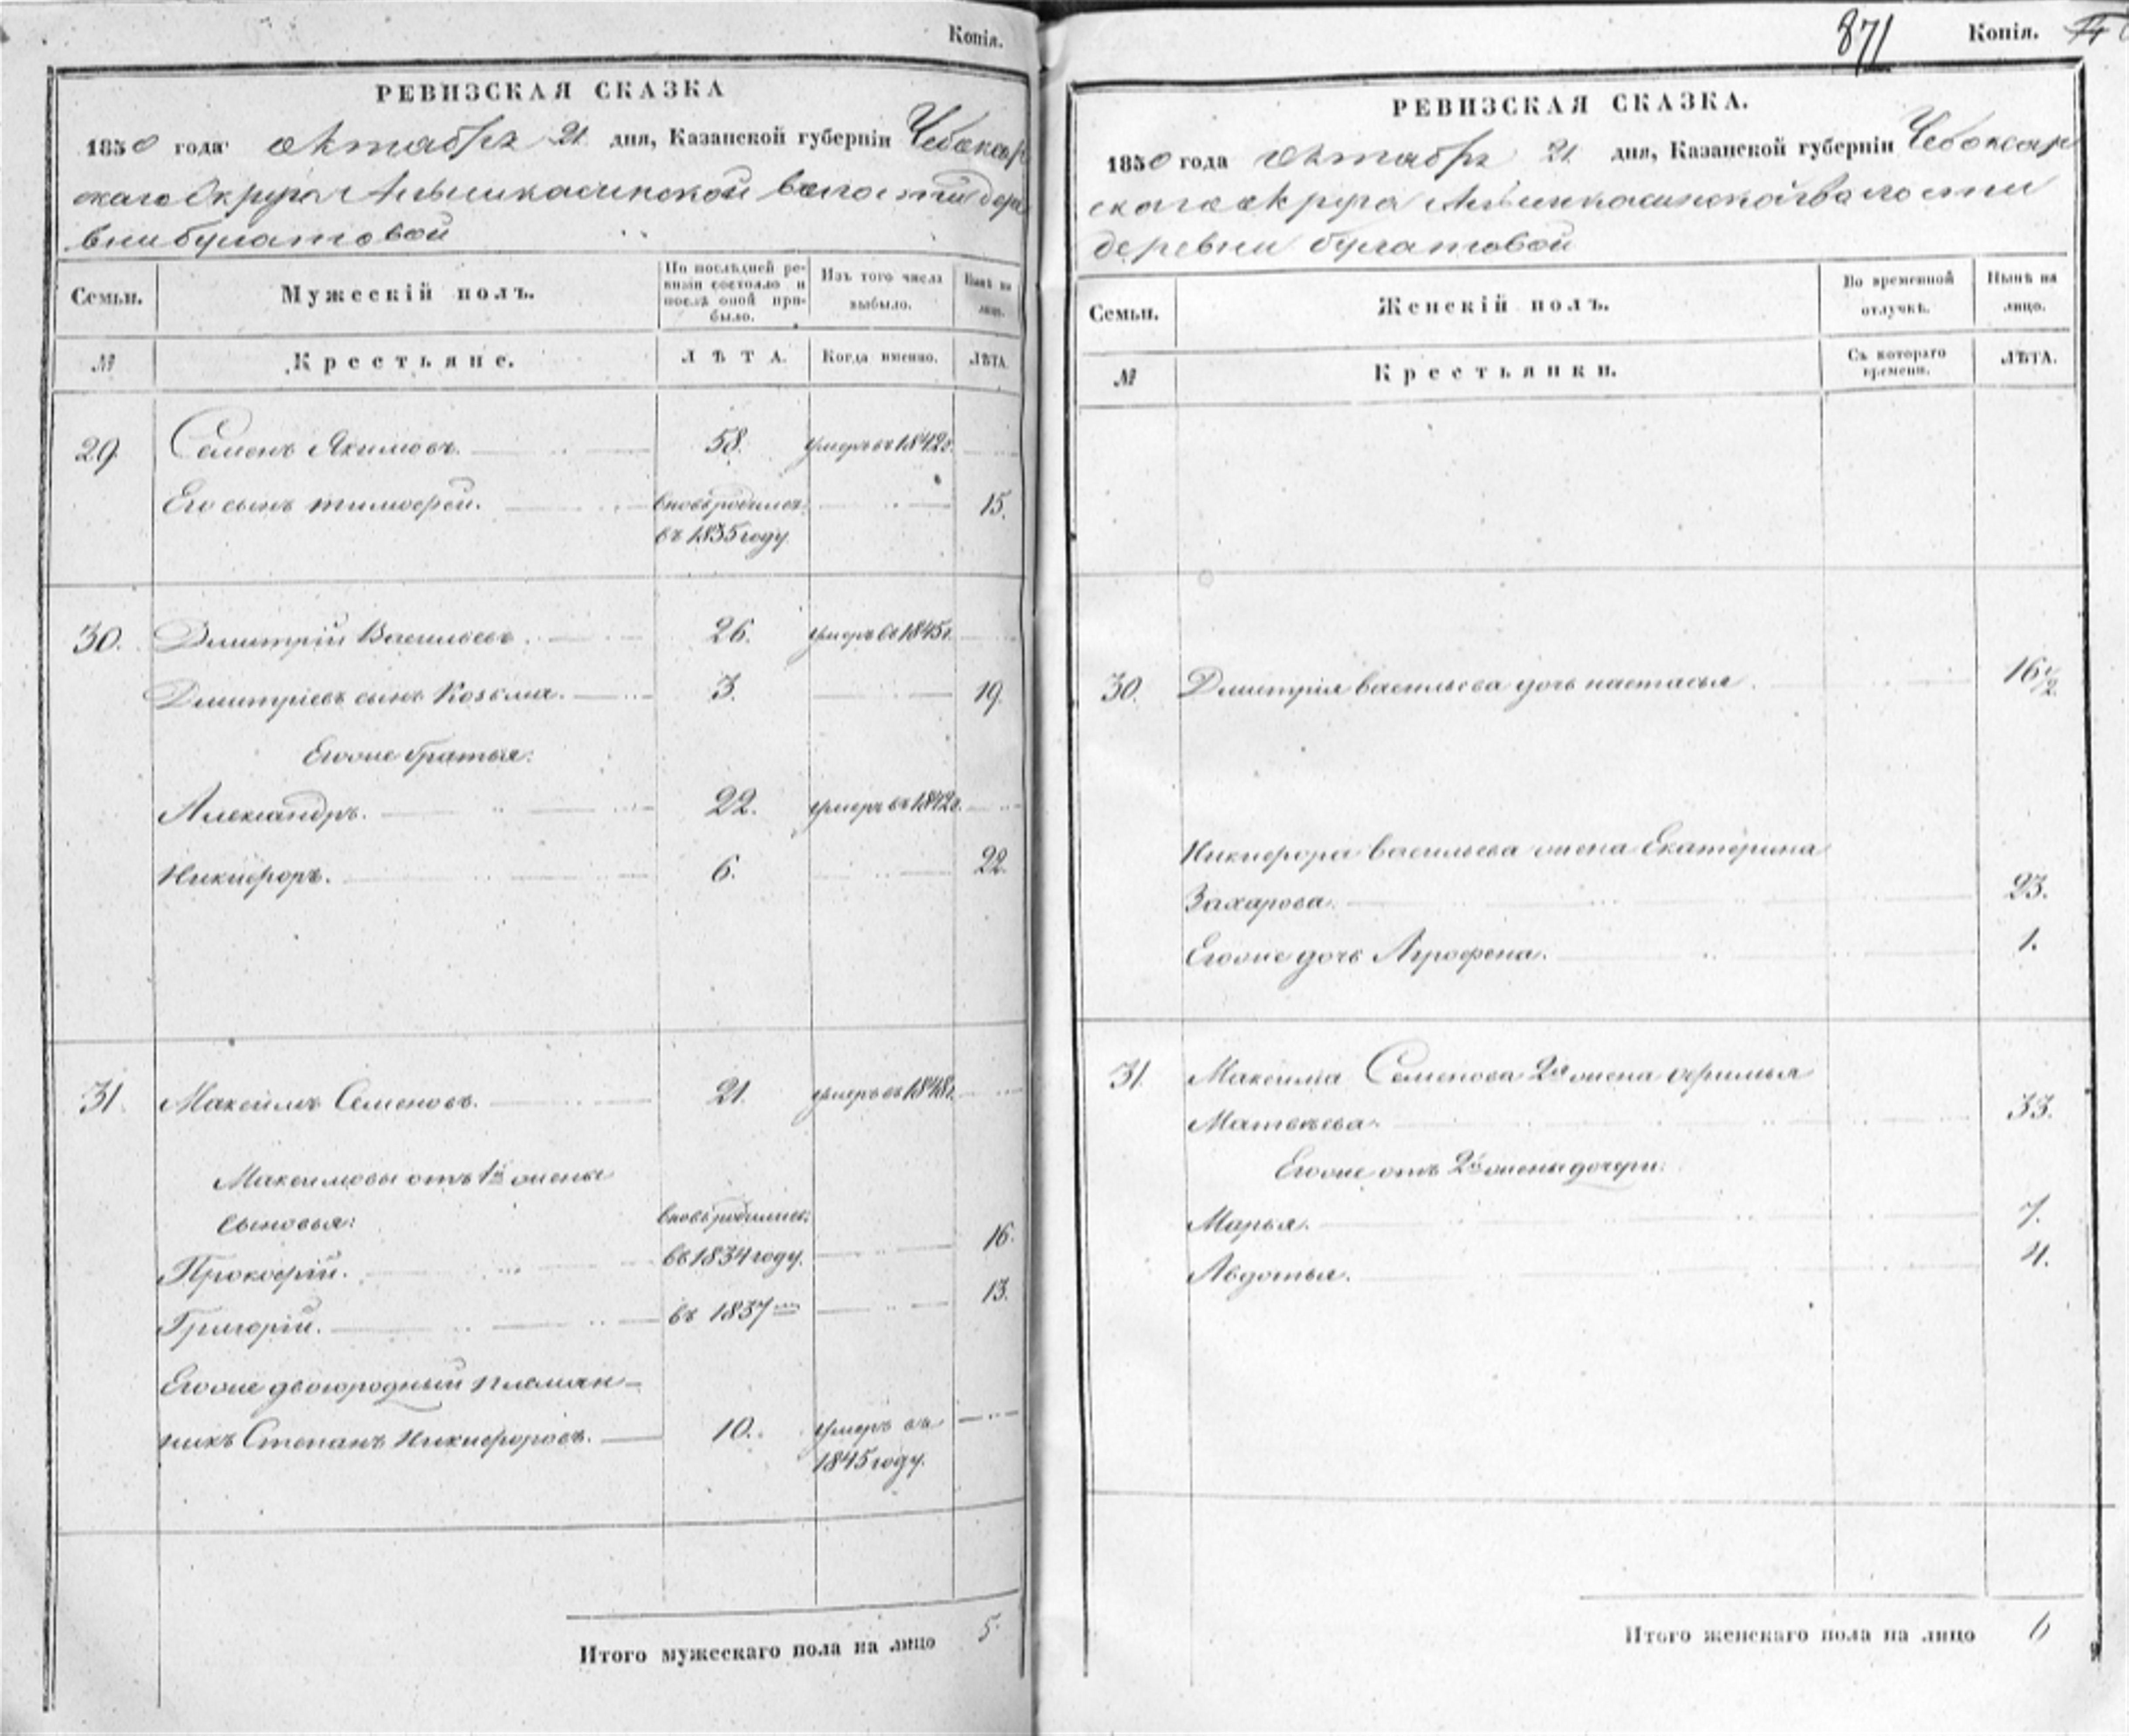 Копія.
РЕВИЗСКАЯ СКАЗКА
1850 года октября 21 дня, Казанской губерніи Чебоксар
скаго Округа Алымкасинской волости дере
вни булатовой
Семьи.
Мужескій полъ.
По послѣдней ре-
визіи состояло и
послѣ оной при-
было.
Изъ того числа
выбыло.
Нынѣ на
лицо.
№
Крестьяне.
ЛѢТА.
Когда именно.
ЛѢТА.
29. Семенъ Якимовъ. 58. умеръ въ 1842г.
Его сынъ тимофей. вновь родился 15.
въ 1835 году.
30. Дмитрій Васильевъ. 26. умеръ въ 1845г.
Дмитріевъ сынъ Козьма. 3. 19.
Егоже братья:
Александръ. 22. умеръ въ 1842г.
Никифоръ. 6. 22.
31. Максимъ Семеновъ. 21. умеръ въ 1848г.
Максимовы отъ 1й жены
сыновья: вновь родились:
Прокофій. въ 1834 году. 16.
Григорій. въ 1837 — 13.
Егоже двоюродный племян-
никъ Степанъ Никифоровъ. 10. умеръ въ
1845 году.
Итого мужескаго пола на лицо 5.
871
Копія.
РЕВИЗСКАЯ СКАЗКА.
1850 года октября 21 дня, Казанской губерніи Чебоксар
скаго округа Алымкасинской волости
деревни булатовой
Семьи.
Женскій полъ.
Во временной
отлучкѣ.
Нынѣ на
лицо.
№
Крестьянки.
Съ котораго
времени.
ЛѢТА.
30. Дмитрія васильева дочь настасья. 16 1/2
Никифора васильева жена Екатерина
Захарова. 23.
Егоже дочь Агрофена. 1.
31. Максима Семенова 2я жена офимья
Матвѣева. 33.
Егоже отъ 2й жены дочери:
Марья. 7.
Авдотья. 4.
Итого женскаго пола на лицо 6